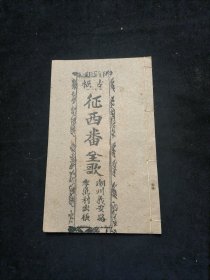 古板
征西番全歌
潮州義安路
李萬利出板